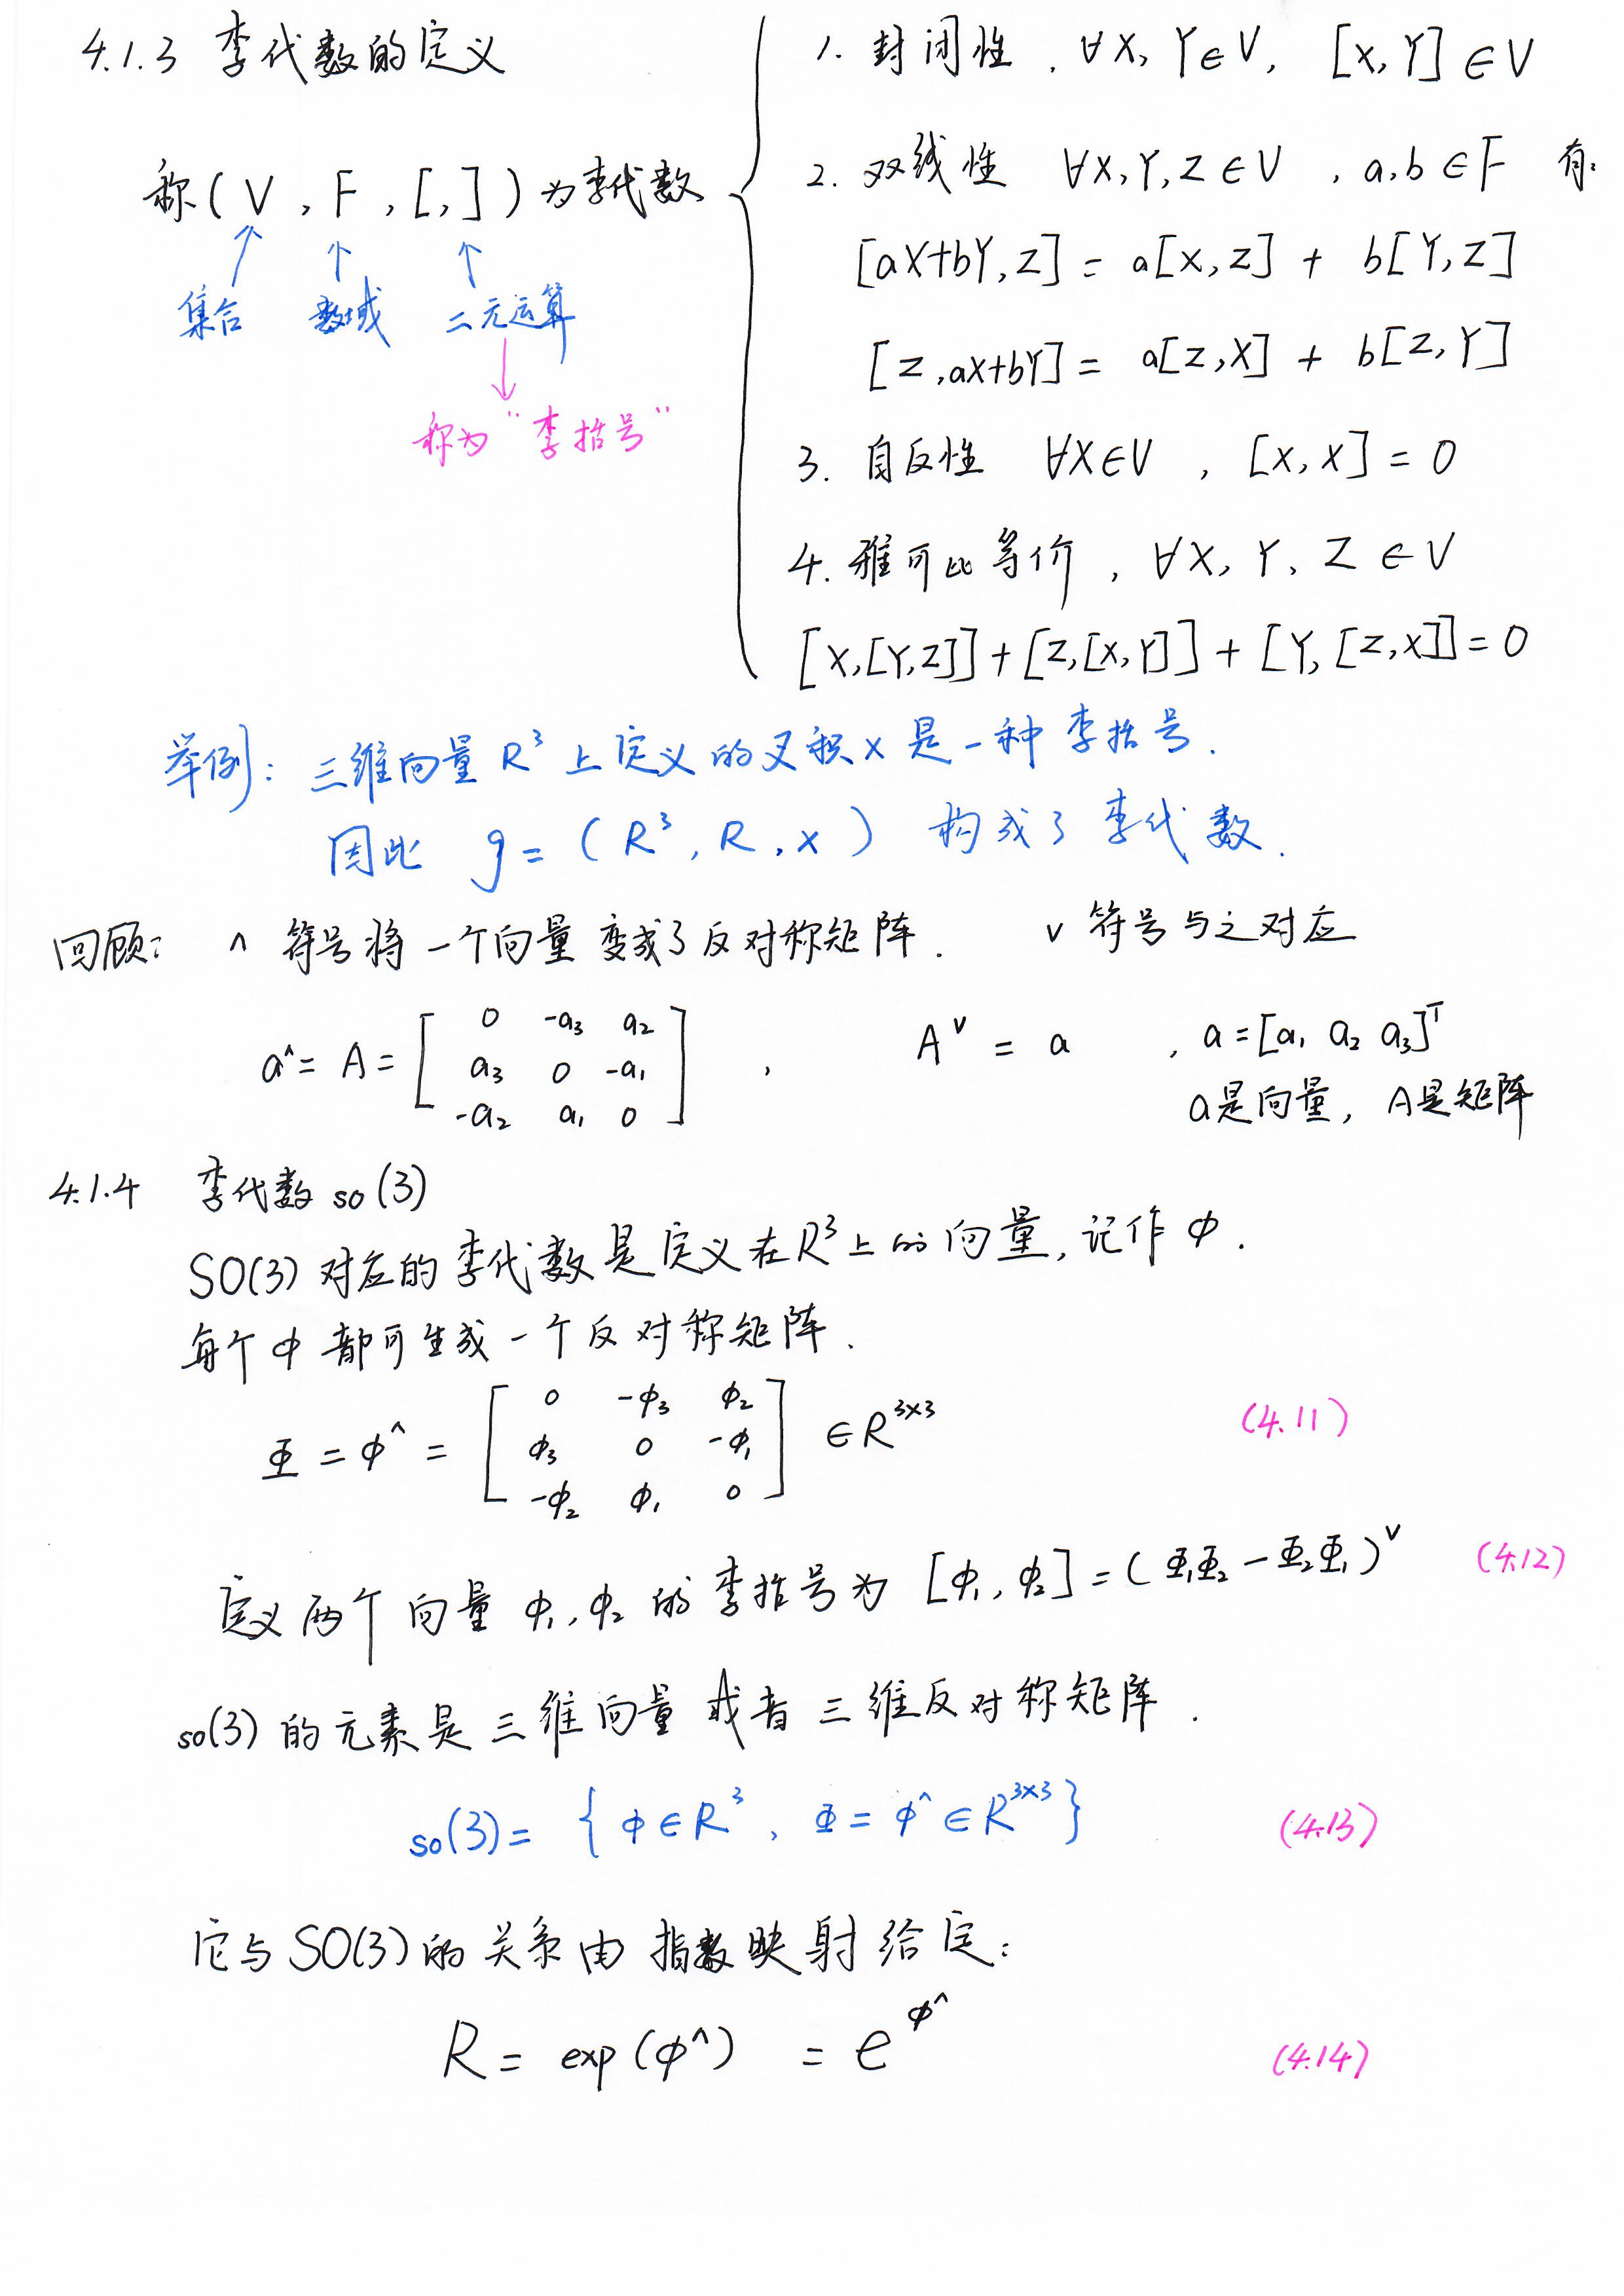 4.1.3 李代数的定义
称(V, F, [,])为李代数
集合 数域 二元运算
称为“李括号”
1. 封闭性, ∀X, Y∈V, [X, Y]∈V
2. 双线性 ∀X, Y, Z∈V, a, b∈F 有:
[aX+bY, Z] = a[X, Z] + b[Y, Z]
[Z, aX+bY] = a[Z, X] + b[Z, Y]
3. 自反性 ∀X∈V, [X, X] = 0
4. 雅可比等价, ∀X, Y, Z∈V
[X,[Y,Z]]+[Z,[X,Y]]+[Y,[Z,X]]=0
举例: 三维向量 R³ 上定义的叉积×是一种李括号.
因此 g = (R³, R, ×) 构成了李代数.
回顾: ^ 符号将一个向量变成了反对称矩阵. ∨ 符号与之对应
a^ = A = [ 0 -a₃ a₂
a₃ 0 -a₁
-a₂ a₁ 0 ] , A^∨ = a , a = [a₁ a₂ a₃]ᵀ
a是向量, A是矩阵
4.1.4 李代数 so(3)
SO(3) 对应的李代数是定义在R³上的向量, 记作 ϕ.
每个 ϕ 都可生成一个反对称矩阵.
Φ = ϕ^ = [ 0 -ϕ₃ ϕ₂
ϕ₃ 0 -ϕ₁
-ϕ₂ ϕ₁ 0 ] ∈R³ˣ³ (4.11)
定义两个向量 ϕ₁, ϕ₂ 的李括号为 [ϕ₁, ϕ₂] = (Φ₁Φ₂ - Φ₂Φ₁)^∨ (4.12)
so(3) 的元素是三维向量或者三维反对称矩阵.
so(3) = { ϕ∈R³, Φ = ϕ^∈R³ˣ³ } (4.13)
它与SO(3)的关系由指数映射给定:
R = exp(ϕ^) = e^{ϕ^} (4.14)